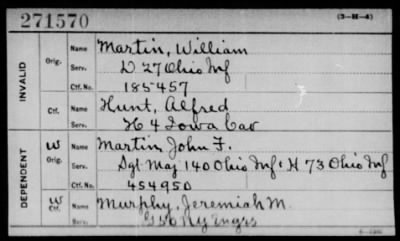 271570
(3-H-4)
INVALID
Orig.
Name Martin, William
Serv. D 27 Ohio Inf
Ctf. No. 185457
Ctf.
Name Hunt, Alfred
Serv. H 4 Iowa Cav
DEPENDENT
W Orig.
Name Martin, John F.
Serv. Sgt Maj 140 Ohio Inf & H 73 Ohio Inf
Ctf. No. 454950
W Ctf.
Name Murphy, Jeremiah M.
Serv. G 50 Ny Engrs